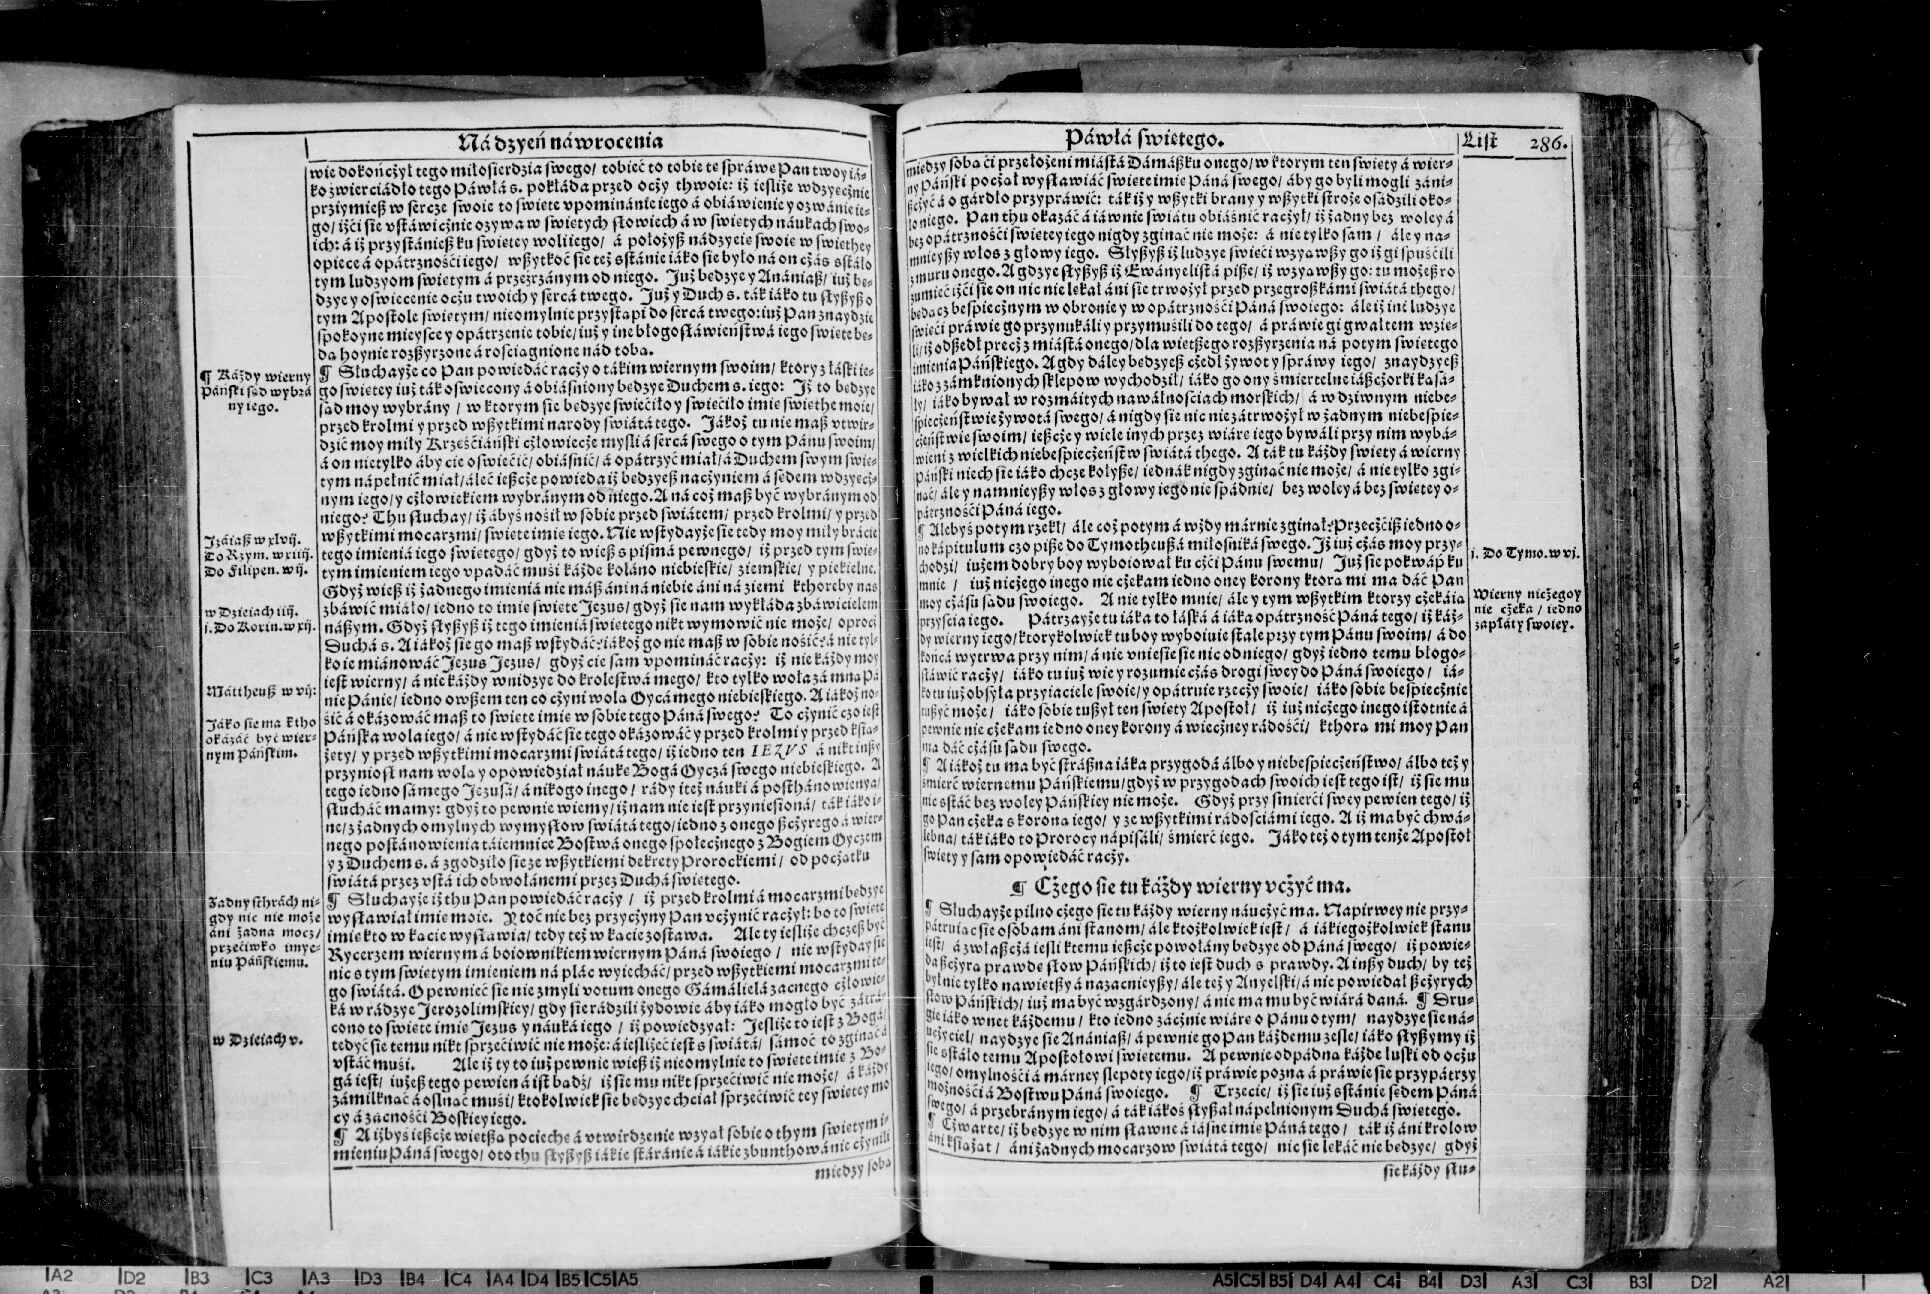 Ná dzyeń náwrocenia
wie dokończył tego miłosierdzia swego/ tobieć to tobie tę spráwę Pan twoy iá-
ko zwierciádło tego Páwłá s. pokłáda przed oczy thwoie: iż iesliże wdzyęcznie
prziymiesz w serce swoie to swięte vpominánie iego á obiáwienie y ozwánie ie-
go/ iżći się vstáwicznie ozywa w swiętych słowiech á w swiętych náukách swo-
ich: á iż przystániesz ku swiętey woli iego/ á położysz nádzyeię swoię w swięthey
opiece á opátrznośći iego/ wszytkoć się też sstánie iáko się było ná on czás sstáło
tym ludzyom swiętym á przezrzánym od niego. Już będzye y Ananiasz/ iuż bę-
dzye y oswiecenie oczu twoich y sercá twego. Już y Duch s. ták iáko tu słyszysz o
tym Apostole swiętym/ nieomylnie przystąpi do sercá twego: iuż Pan znaydzie
spokoyne mieysce y opátrzenie tobie/ iuż y ine błogosłáwieństwá iego swięte bę-
dą hoynie rozszyrzone á rosciągnione nád tobą.
¶ Każdy wierny
Páński sąd wybrá
ny iego.
¶ Słuchayże co Pan powiedáć raczy o tákim wiernym swoim/ ktory z łáski ie-
go swiętey iuż ták oswiecony á obiásniony będzye Duchem s. iego: Iż to będzye
sąd moy wybrány/ w ktorym się będzye swiećiło y swiećiło imię swięthe moie/
przed krolmi y przed wszytkimi narody swiátá tego. Jákoż tu nie masz vtwir-
dzić moy miły Krześćiáński człowiecze mysli á sercá swego o tym Pánu swoim/
á on nie tylko áby cię oswiećić/ obiásnić/ á opátrzyć miał/ á Duchem swym swię-
tym nápełnić miał/ áleć ieszcze powieda iż będzyesz naczyniem á sędem wdzyęcz-
nym iego/ y człowiekiem wybránym od niego. A ná coż masz być wybránym od
niego? Thu słuchay/ iż ábyś nosił w sobie przed swiátem/ przed krolmi/ y przed
wszytkimi mocarzmi/ swięte imię iego. Nie wstydayże się tedy moy miły brácie
Izáiasz w xlvij.
Do Rzym. w xiiij.
Do Filipen. w ij.
tego imienia iego swiętego/ gdyż to wiesz s pismá pewnego/ iż przed tym swię-
tym imieniem iego vpadáć muśi káżde kolano niebieskie/ ziemskie/ y piekielne.
Gdyż wiesz iż żadnego imienia nie masz áni ná niebie áni ná ziemi kthoreby nas
w Dzieiach iiij.
j. Do Korin. w xij.
zbáwić miáło/ iedno to imię swięte Jezus/ gdyż się nam wykłáda zbáwicielem
nászym. Gdyż słyszysz iż tego imienia swiętego nikt wymowić nie może/ oprocz
Duchá s. A iákoż się go masz wstydáć? iákoż go nie masz w sobie nosić? á nie tyl-
ko ie miánowáć Jezus Jezus/ gdyż cię sam vpomináć raczy: iż nie káżdy moy
Mattheusz w vij:
iest wierny/ á nie káżdy wnidzye do krolestwá mego/ kto tylko woła zá mną Pá
nie Pánie/ iedno owszem ten co czyni wolą Oycá mego niebieskiego. A iákoż no-
Jáko się ma ktho
okázáć być wier-
nym Páńskim.
sić á okázowáć masz to swięte imię w sobie tego Páná swego? To czynić czo iest
Páńska wola iego/ á nie wstydáć się tego okázowáć y przed krolmi y przed kśią-
żęty/ y przed wszytkimi mocarzmi swiátá tego/ iż iedno ten IEZVS á nikt inszy
przyniosł nam wolą y opowiedział náukę Bogá Oyczá swego niebieskiego. A
tego iedno sámego Jezusá/ á nikogo inego/ rády też náuki á posthánowienya/
słucháć mamy: gdyż to pewnie wiemy/ iż nam nie iest przyniesioná/ ták iáko i-
ne/ z żadnych omylnych wymysłow swiátá tego/ iedno z onego szczyrego á wier-
nego postánowienia táiemnice Bostwá onego społecznego z Bogiem Oyczem
y z Duchem s. á zgodziło się ze wszytkiemi dekrety Prorockiemi/ od początku
swiátá przez vstá ich obwołánemi przez Duchá swiętego.
Żadny sthrách ni-
gdy nic nie może
áni żadna mocz/
przećiwko imye-
niu Páńskiemu.
¶ Słuchayże iż thu Pan powiedáć raczy/ iż przed krolmi á mocarzmi będzye
wysławiał imię moie. Y toć nie bez przyczyny Pan vczynić raczył: bo to swięte
imię kto w kącie wysławia/ tedy też w kącie zostawa. Ale ty iesliże chczesz być
Rycerzem wiernym á boiownikiem wiernym Páná swoiego/ nie wstyday się
nic s tym swiętym imieniem ná plác wyiecháć/ przed wszytkiemi mocarzmi te-
go swiátá. O pewnieć się nie zmyli votum onego Gámálielá zacnego człowie-
ká w rádzye Jerozolimskiey/ gdy się rádzili żydowie áby iáko mogło być zátrá-
cono to swięte imię Jezus y náuká iego/ iż powiedzyał: Jesliże to iest z Bogá/
w Dzieiach v.
tedyć się temu nikt sprzećiwić nie może: á iesliżeć iest s swiátá/ sámoć to zginąć á
vstáć muśi. Ale iż ty to iuż pewnie wiesz iż nieomylnie to swięte imię z Bo-
gá iest/ iużesz tego pewien á ist bądź/ iż się mu nikt sprzećiwić nie może/ á káżdy
zámilknąć á oslnąć muśi/ ktokolwiek się będzye chciał sprzećiwić tey swiętey mo
cy á zacnośći Boskiey iego.
¶ A iżbyś ieszcze więtszą pociechę á vtwirdzenie wzyął sobie o thym swiętym i-
mieniu Páná swego/ oto thu słyszysz iákie stáránie á iákie zbunthowánie czynili
miedzy sobą
Páwłá swiętego.
List 286.
miedzy sobą ći przełożeni miástá Dámászku onego/ w ktorym ten swięty á wier-
ny Páński począł wysławiáć swięte imię Páná swego/ áby go byli mogli zání-
szczyć á o gárdło przypráwić: ták iż y wszytki brány y wszytki stroże osádzili oko-
ło niego. Pan thu okazáć á iáwnie swiátu obiásnić raczył/ iż żadny bez woley á
bez opátrznośći swiętey iego nigdy zginąć nie może: á nie tylko sam/ ále y na-
mnieyszy włos z głowy iego. Słyszysz iż ludzye swięći wzyąwszy go iż gi spuśćili
z muru onego. A gdzye słyszysz iż Ewányelistá pisze/ iż wzyąwszy go: tu możesz ro
zumieć iżći się on nic nie lękał áni się trwożył przed przegroszkámi swiátá thego/
będącz bespiecznym w obronie y w opátrznośći Páná swoiego: ále iż ini ludzye
swięći práwie go przynukáli y przymuśili do tego/ á práwie gi gwałtem wzię-
li/ iż odszedł precz z miástá onego/ dla więtszego rozszyrzenia ná potym swiętego
imienia Páńskiego. A gdy dáley będzyesz czedł żywot y spráwy iego/ znaydzyesz
iáko z zámknionych sklepow wychodził/ iáko go ony śmiertelne iászczorki kąsá-
ły/ iáko bywał w rozmáitych nawáłnośćiach morskich/ á w dziwnym niebe-
spieczeństwie żywotá swego/ á nigdy się nic nie zátrwożył w żadnym niebespie-
czeństwie swoim/ ieszcze y wiele inych przez wiárę iego bywáli przy nim wybá-
wieni z wielkich niebespieczeństw swiátá thego. A ták tu káżdy swięty á wierny
Páński niech się iáko chcze kołysze/ iednák nigdy zginąć nie może/ á nie tylko zgi-
nąć/ ále y namnieyszy włos z głowy iego nie spádnie/ bez woley á bez swiętey o-
pátrznośći Páná iego.
¶ Alebyś potym rzekł/ ále coż potym á wżdy márnie zginął? Przeczćisz iedno o-
no kápitulum czo pisze do Tymotheuszá miłosniká swego. Iż iuż czás moy przy-
j. Do Tymo. w vj.
chodzi/ iużem dobry boy wyboiował ku czći Pánu swemu/ Już się pokwápą ku
mnie/ iuż niczego inego nie czekam iedno oney korony ktorą mi ma dáć Pan
Wierny niczegoy
nie czeka/ iedno
zapłáty swoiey.
moy czásu sądu swoiego. A nie tylko mnie/ ále y tym wszytkim ktorzy czekáią
przyścia iego. Pátrzayże tu iáka to łáska á iáka opátrzność Páná tego/ iż káż-
dy wierny iego/ ktorykolwiek tu boy wyboiuie stale przy tym Pánu swoim/ á do
końcá wytrwa przy nim/ á nie vniesie się nic od niego/ gdyż iedno temu błogo-
słáwić raczy/ iáko tu iuż wie y rozumie czás drogi swey do Páná swoiego/ iá-
ko tu iuż obsyła przyiaciele swoie/ y opátruie rzeczy swoie/ iáko sobie bespiecznie
tuszyć może/ iáko sobie tuszył ten swięty Apostoł/ iż iuż niczego inego istotnie á
pewnie nie czekam iedno oney korony á wieczney rádośći/ kthorą mi moy Pan
ma dáć czásu sądu swego.
¶ A iákoż tu ma być strászna iáka przygodá álbo y niebespieczeństwo/ álbo też y
śmierć wiernemu Páńskiemu/ gdyż w przygodach swoich iest tego ist/ iż się mu
nic sstáć bez woley Páńskiey nie może. Gdyż przy śmierći swey pewien tego/ iż
go Pan czeka s koroną iego/ y ze wszytkimi rádosciámi iego. A iż ma być chwá-
lebna/ ták iáko to Prorocy nápisáli/ śmierć iego. Jáko też o tym tenże Apostoł
swięty y sam opowiedáć raczy.
¶ Czego się tu káżdy wierny vczyć ma.
¶ Słuchayże pilno czego się tu káżdy wierny náuczyć ma. Napirwey nie przy-
pátruiąc się osobam áni stanom/ ále ktożkolwiek iest/ á iákiegożkolwiek stanu
iest/ á zwłaszczá iesli k temu ieszcze powołány będzye od Páná swego/ iż powie-
da szczyrą prawdę słow Páńskich/ iż to iest duch s prawdy. A inszy duch/ by też
był nie tylko nawiętszy á nazacnieyszy/ ále też y Anyelski/ á nie powiedał szczyrych
słow Páńskich/ iuż ma być wzgárdzony/ á nie ma mu być wiárá daná. ¶ Dru-
gie iáko wnet káżdemu/ kto iedno zácznie wiárę o Pánu o tym/ naydzye się ná-
uczyciel/ naydzye się Ananiasz/ á pewnie go Pan káżdemu zesle/ iáko słyszymy iż
się sstáło temu Apostołowi swiętemu. A pewnie odpádną káżde łuski od oczu
iego/ omylnośći á márney slepoty iego/ iż práwie pozna á práwie się przypátrzy
możnośći á Bostwu Páná swoiego. ¶ Trzecie/ iż się iuż sstánie sędem Páná
swego/ á przebránym iego/ á ták iákoś słyszał nápełnionym Duchá swiętego.
¶ Czwarte/ iż będzye w nim sławne á iásne imię Páná tego/ ták iż áni krolow
áni kśiążąt/ áni żadnych mocarzow swiátá tego/ nic się lękáć nie będzye/ gdyż
się káżdy słu-
IA2 ID2 IB3 IC3 IA3 ID3 IB4 IC4 IA4 ID4 IB5 IC5 IA5
A5I C5I B5I D4I A4I C4I B4I D3I A3I C3I B3I D2I A2I